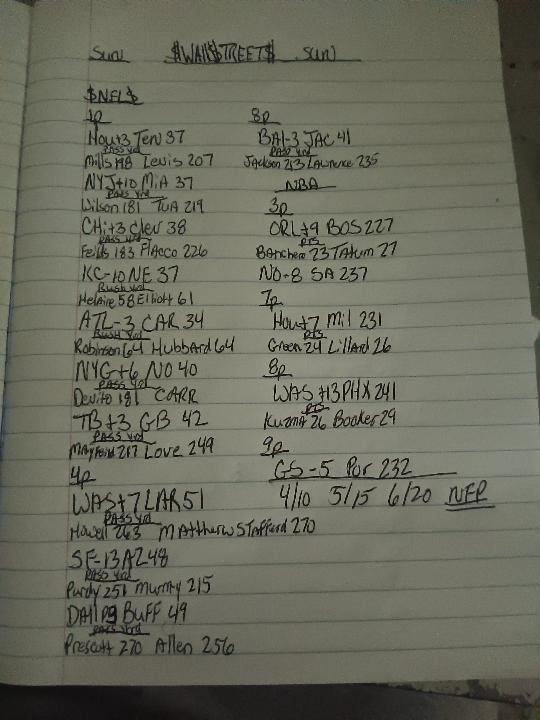 Sun $WALL$TREET$ Sun
$NFL$
1p
Hou+3 Ten 37
Pass yrd
Mills 198 Levis 207
NYJ+10 MiA 37
Pass yrd
Wilson 181 TUA 219
CHi+3 Clev 38
Pass yrd
Feilds 183 Flacco 226
KC-10 NE 37
Rush yrd
Helaire 58 Elliott 61
ATL-3 CAR 34
Rush yrd
Robinson 64 Hubbard 64
NYG+6 NO 40
Pass yrd
Devito 181 CARR
TB+3 GB 42
Pass yrd
Mayfeild 217 Love 249
4p
WAS+7 LAR 51
Pass yrd
Howell 263 MAtthew STAfford 270
SF-13 AZ 48
Pass yrd
Purdy 251 Murray 215
DAll Buff 49
Pass yrd
Prescott 270 Allen 256
8p
BAl-3 JAC 41
Pass yrd
Jackson 213 Lawrence 235
NBA
3p
ORL+9 BOS 227
PTS
Banchero 23 Tatum 27
NO-8 SA 237
7p
Hou+7 Mil 231
PTS
Green 24 Lillard 26
8p
WAS+13 PHX 241
PTS
Kuzma 26 Booker 29
9p
GS-5 Por 232
4/10 5/15 6/20 NFP